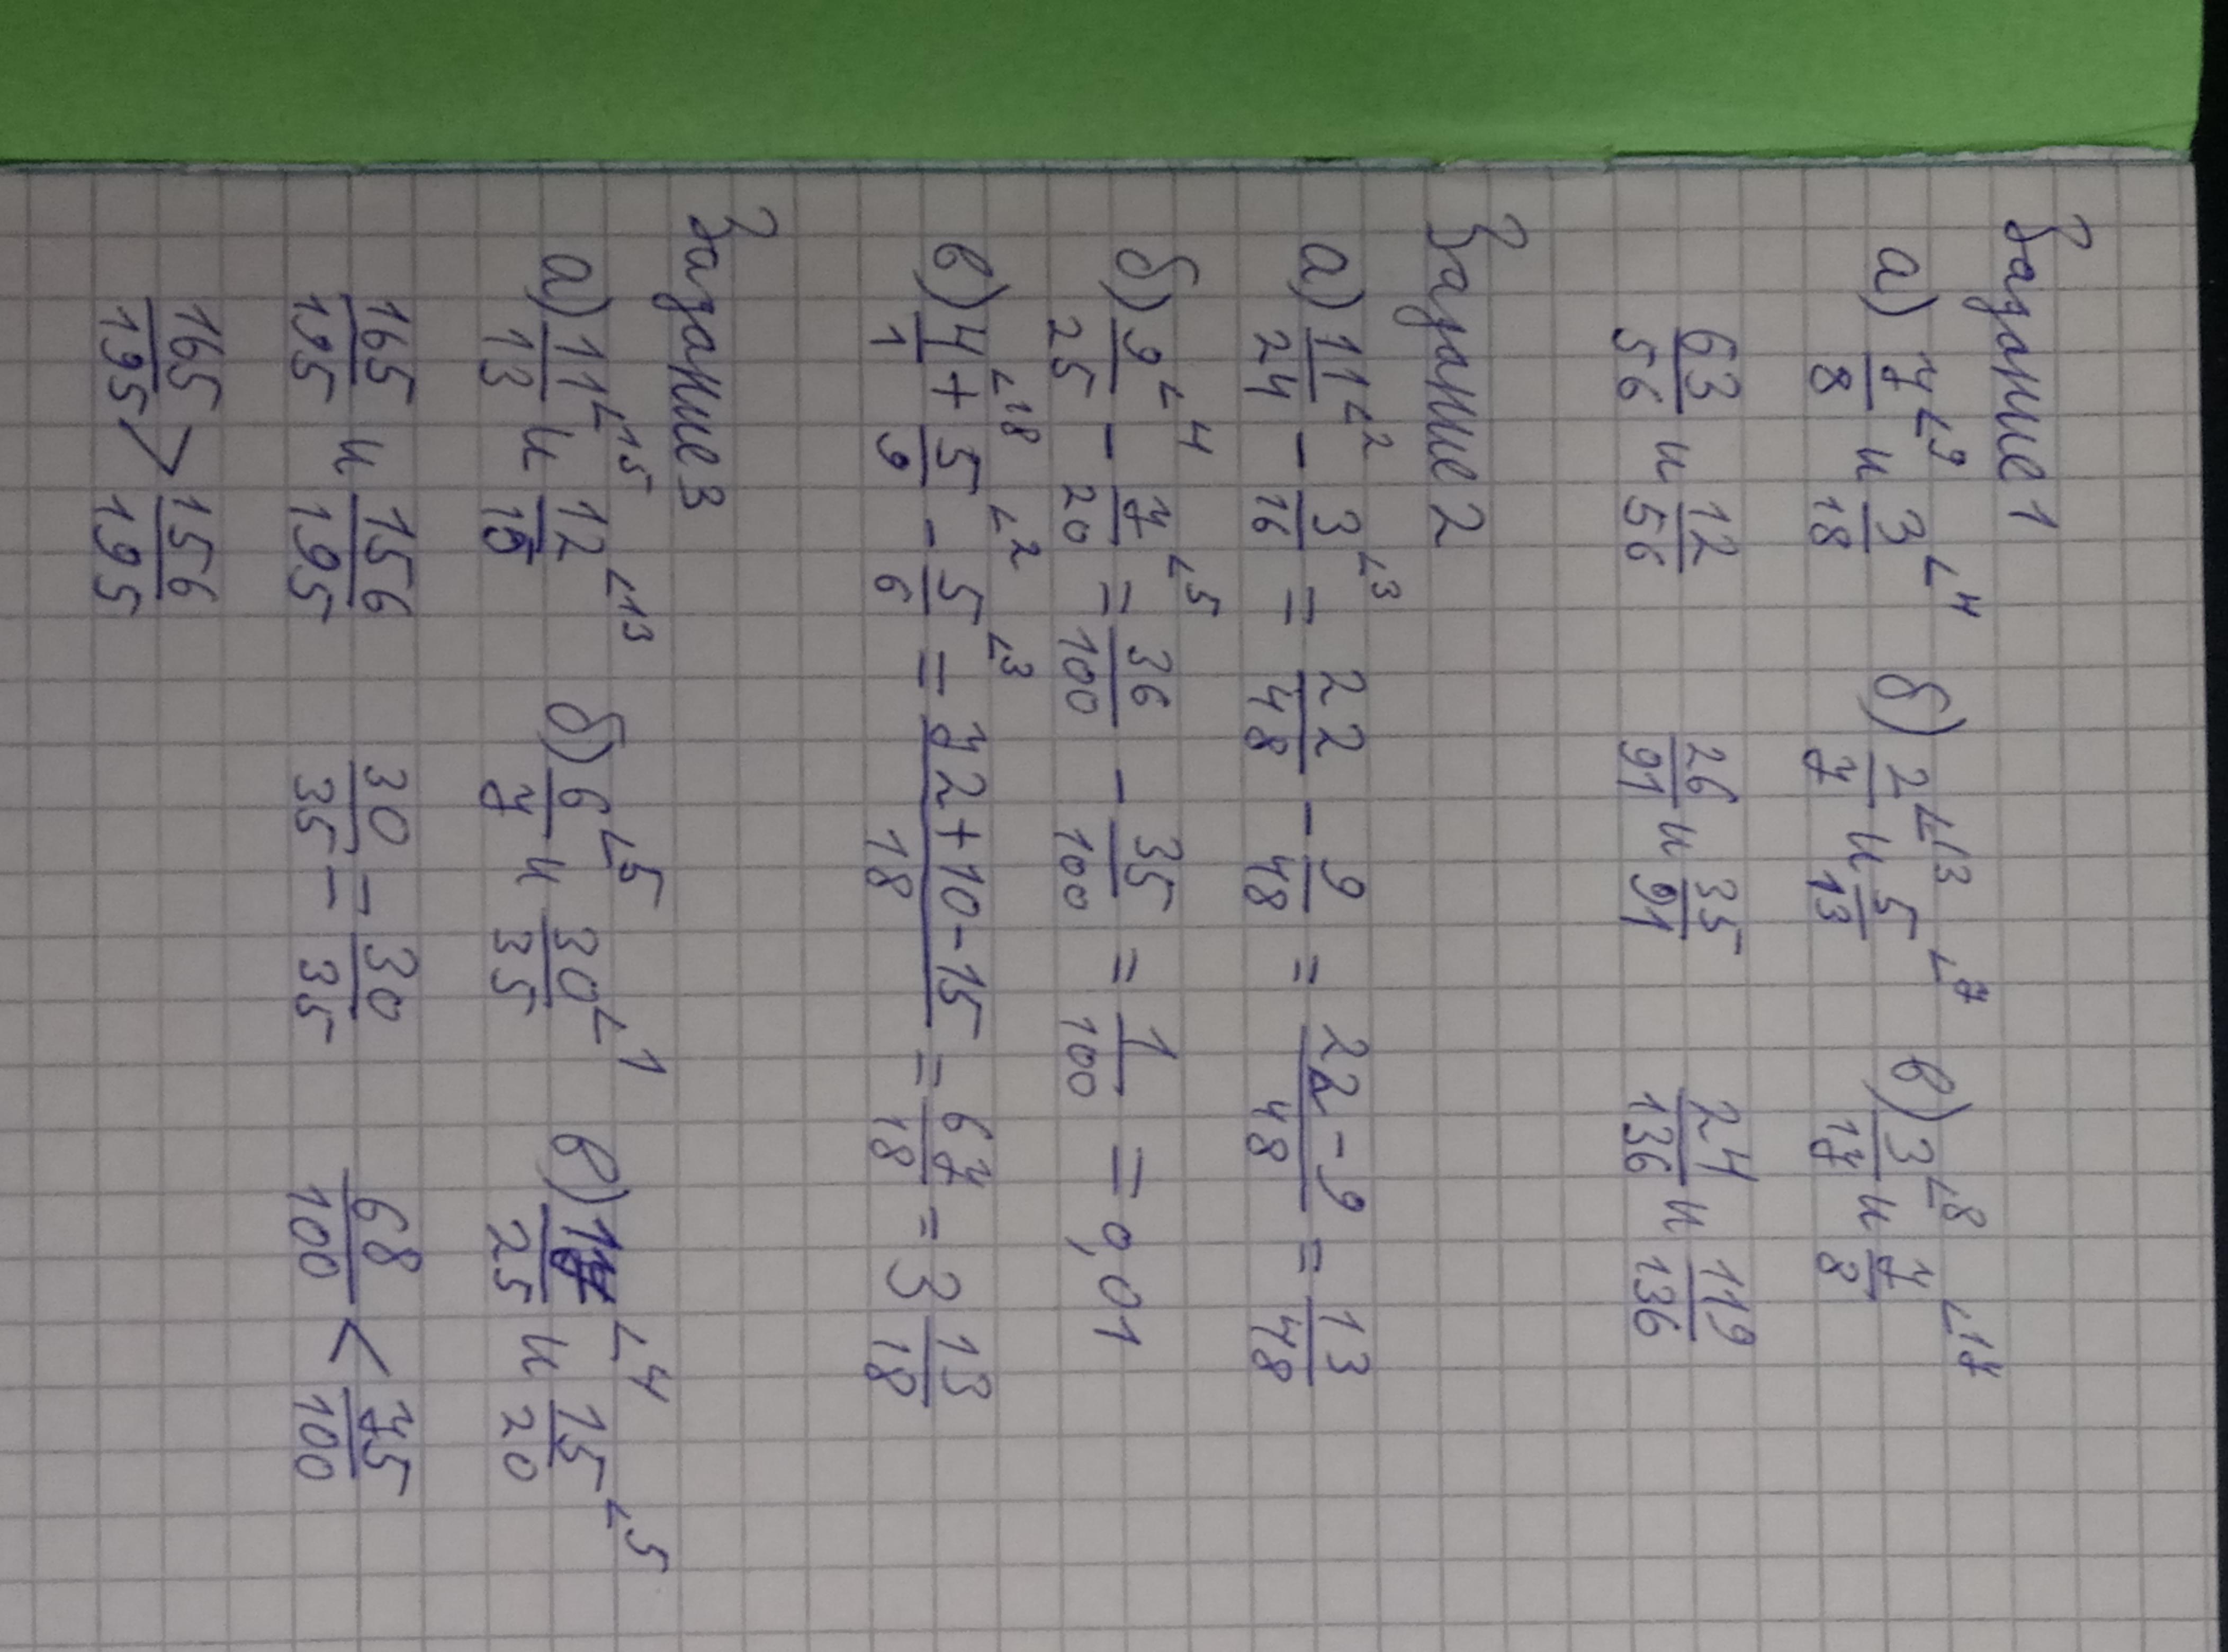 Задание 1
а) 7/8 ∠9 и 3/18 ∠4 б) 2/7 ∠13 и 5/13 ∠7 в) 3/17 ∠8 и 7/8 ∠17
63/56 и 12/56 26/91 и 35/91 24/136 и 119/136
Задание 2
а) 11/24 ∠2 - 3/16 ∠3 = 22/48 - 9/48 = 22-9/48 = 13/48
б) 9/25 ∠4 - 7/20 ∠5 = 36/100 - 35/100 = 1/100 = 0,01
в) 4/1 ∠18 + 5/9 ∠2 - 5/6 ∠3 = 72+10-15/18 = 67/18 = 3 13/18
Задание 3
а) 11/13 ∠15 и 12/15 ∠13 б) 6/7 ∠5 и 30/35 ∠1 в) 17/25 ∠4 и 15/20 ∠5
165/195 и 156/195 30/35 = 30/35 68/100 < 75/100
165/195 > 156/195